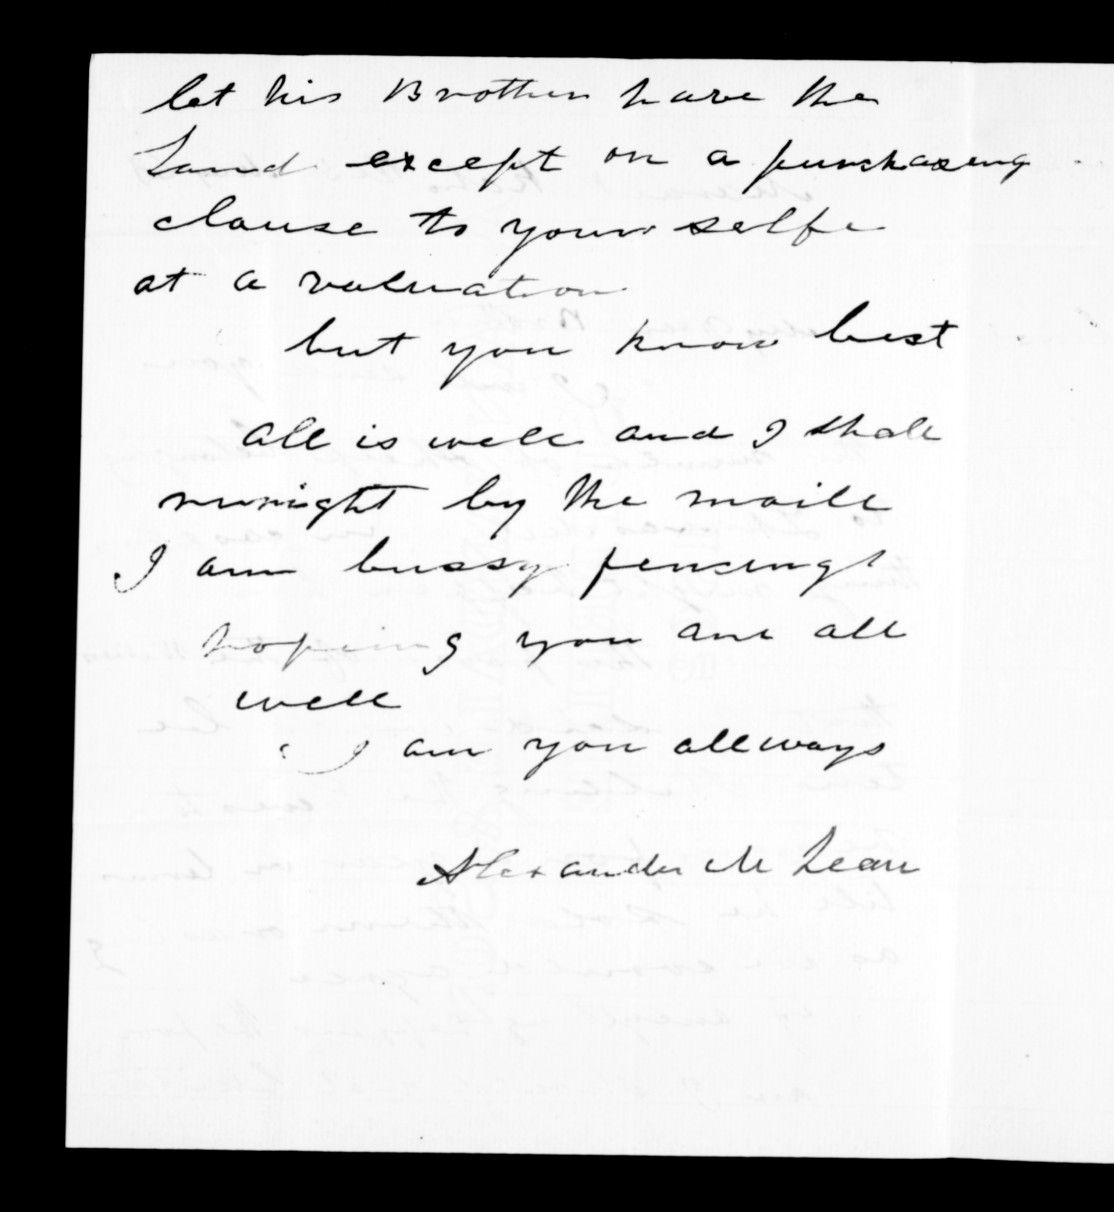 let his Brother have the
Land except on a purchasing
clause to your selfe
at a valuation
but you know best
all is well and I shall
by the maill
I am bussy fencing
hoping you are all
well
I am you allways
Alexander McLean